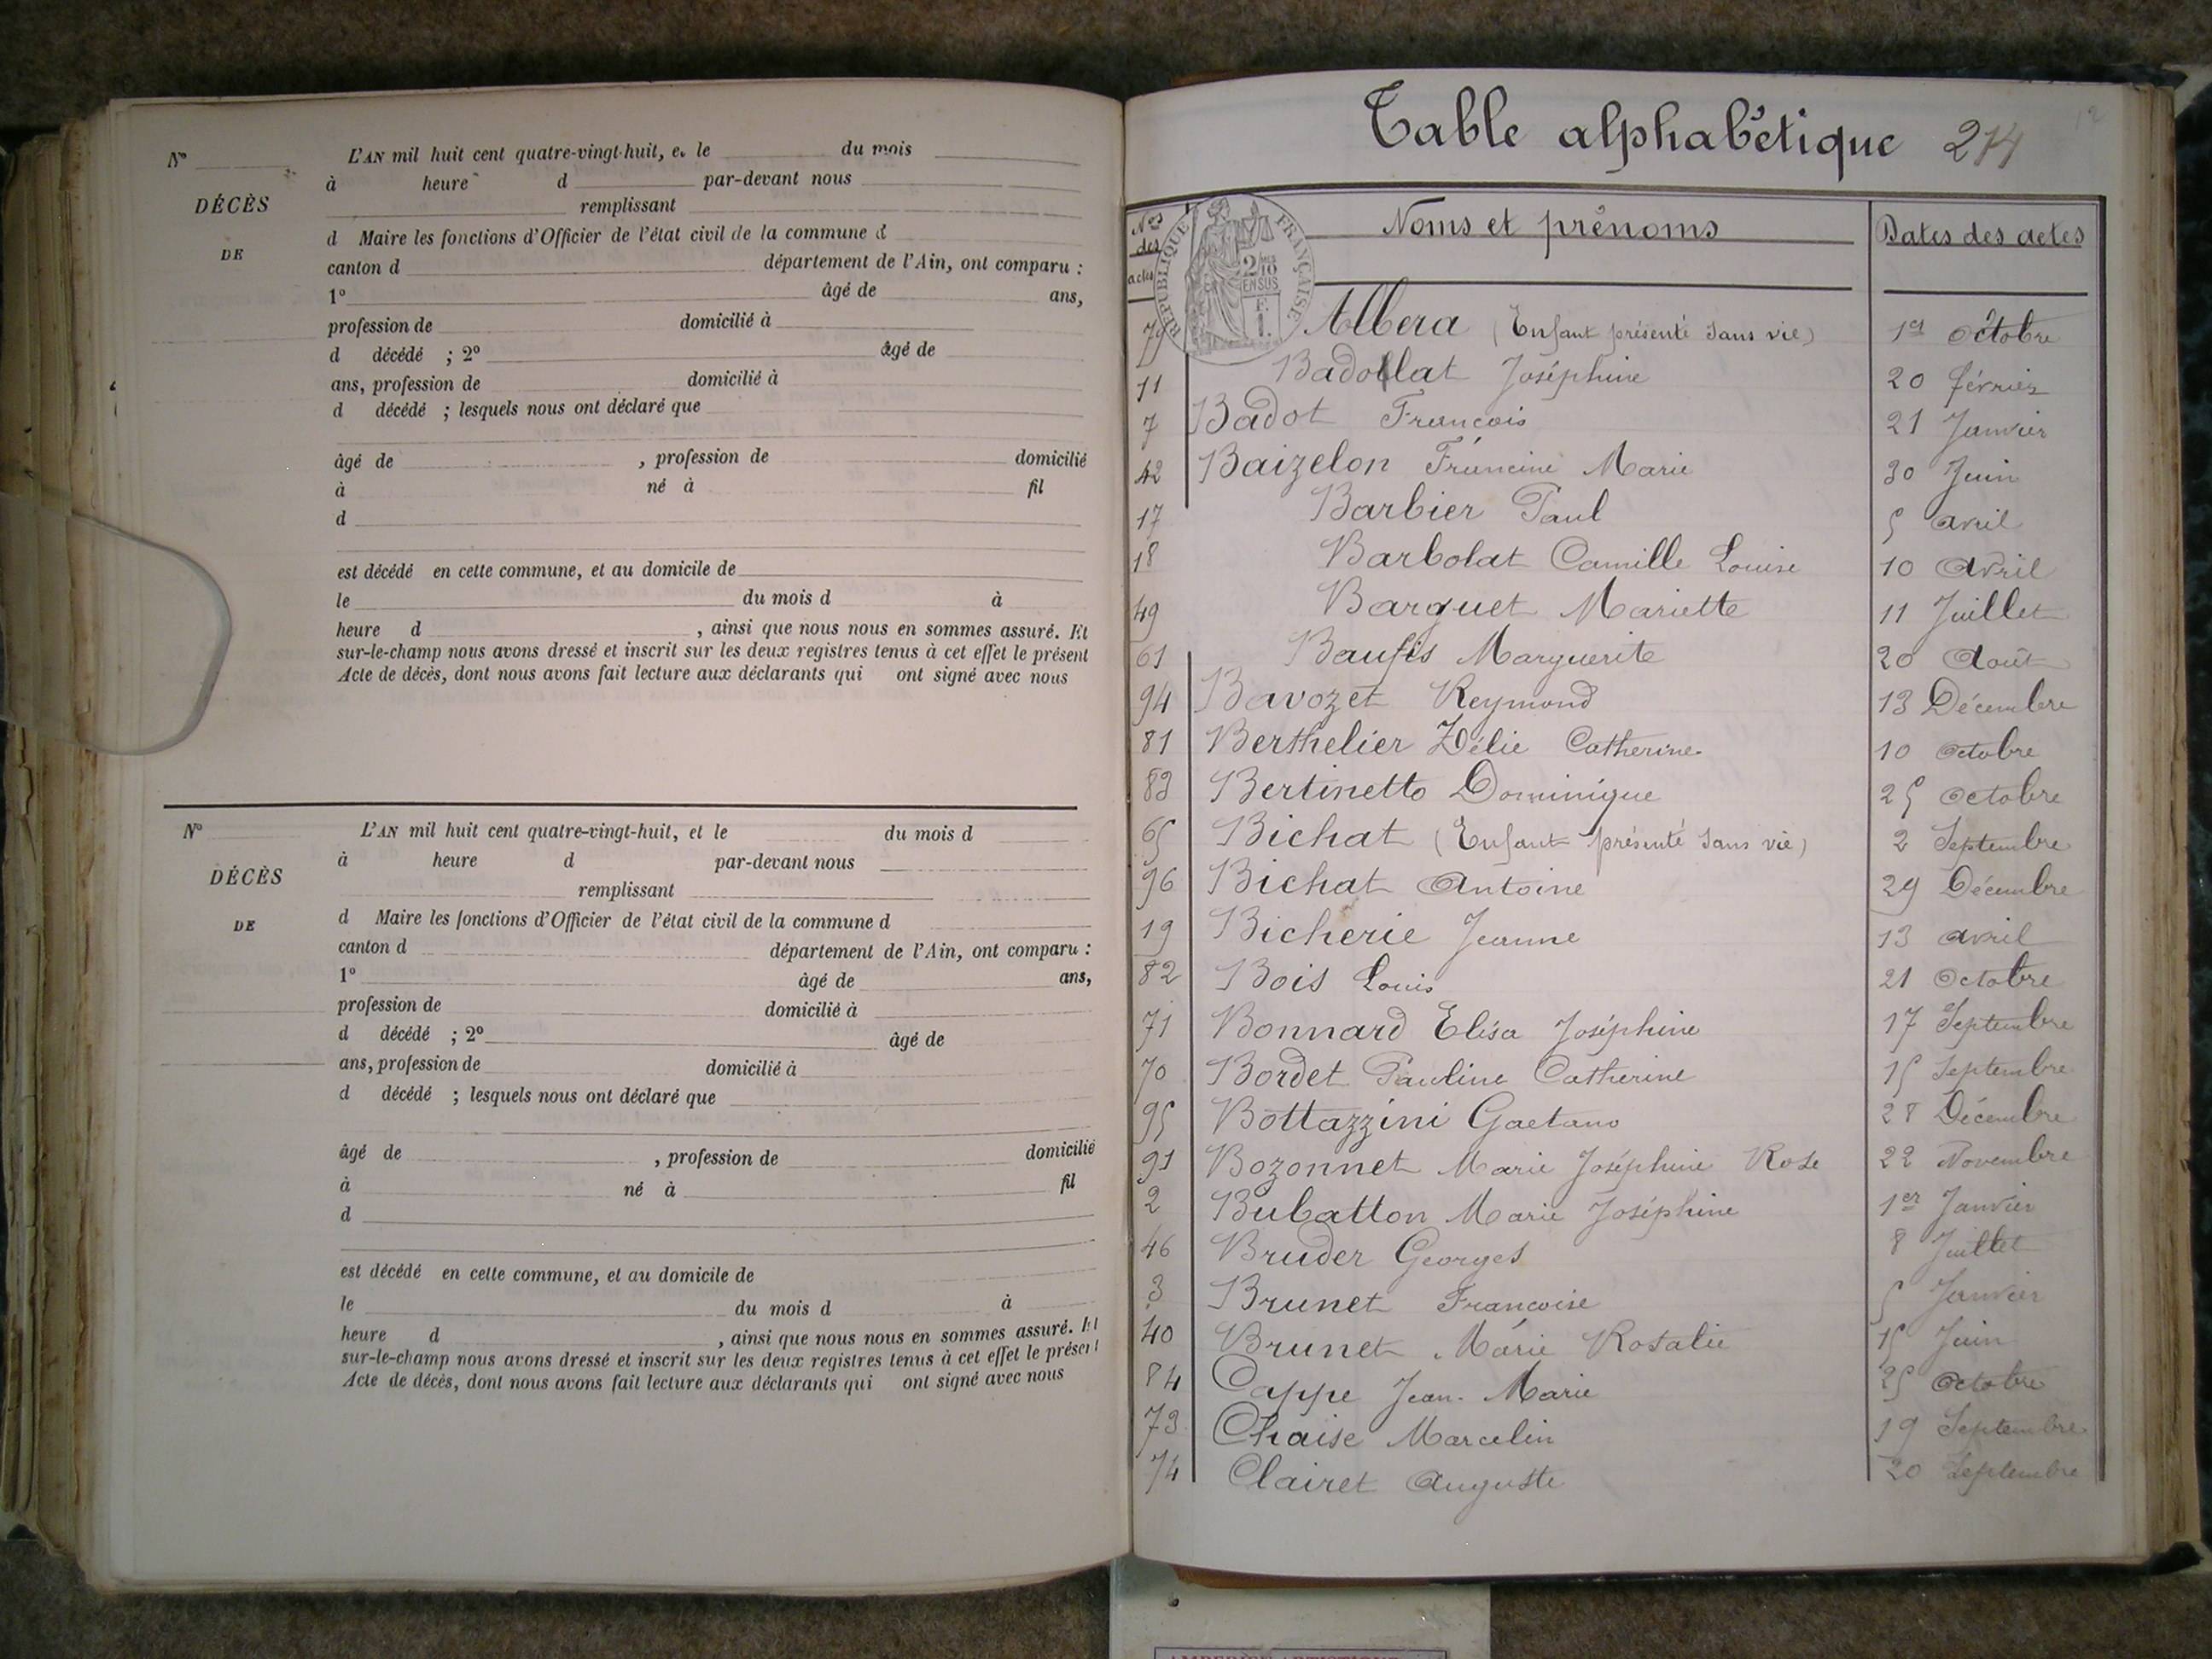 N°
L'AN mil huit cent quatre-vingt-huit, et le du mois
à heure d par-devant nous
DÉCÈS
remplissant
DE
d Maire les fonctions d'Officier de l'état civil de la commune d
canton d département de l'Ain, ont comparu :
1° âgé de ans,
profession de domicilié à
d décédé ; 2° âgé de
ans, profession de domicilié à
d décédé ; lesquels nous ont déclaré que
âgé de , profession de domicilié
à né à fil
d
est décédé en cette commune, et au domicile de
le du mois d à
heure d , ainsi que nous nous en sommes assuré. Et
sur-le-champ nous avons dressé et inscrit sur les deux registres tenus à cet effet le présent
Acte de décès, dont nous avons fait lecture aux déclarants qui ont signé avec nous
N°
L'AN mil huit cent quatre-vingt-huit, et le du mois d
à heure d par-devant nous
DÉCÈS
remplissant
DE
d Maire les fonctions d'Officier de l'état civil de la commune d
canton d département de l'Ain, ont comparu :
1° âgé de ans,
profession de domicilié à
d décédé ; 2° âgé de
ans, profession de domicilié à
d décédé ; lesquels nous ont déclaré que
âgé de , profession de domicilié
à né à fil
d
est décédé en cette commune, et au domicile de
le du mois d à
heure d , ainsi que nous nous en sommes assuré. Et
sur-le-champ nous avons dressé et inscrit sur les deux registres tenus à cet effet le présent
Acte de décès, dont nous avons fait lecture aux déclarants qui ont signé avec nous
Table alphabétique 214
Nos des actes Noms et prénoms Dates des actes
RÉPUBLIQUE FRANÇAISE
2/10 EN SUS
F. 1.
79 Albera (Enfant présenté sans vie) 1er Octobre
11 Badollat Joséphine 20 février
7 Badot François 21 Janvier
42 Baizelon Francine Marie 30 Juin
17 Barbier Paul 5 avril
18 Barbolat Camille Louise 10 Avril
49 Barquet Mariette 11 Juillet
61 Baufis Marguerite 20 Août
94 Bavozet Reymond 13 Décembre
81 Berthelier Zélie Catherine 10 Octobre
83 Bertinetto Dominique 25 Octobre
65 Bichat (Enfant présenté sans vie) 2 Septembre
96 Bichat Antoine 29 Décembre
19 Bicherie Jeanne 13 avril
82 Bois Louis 21 Octobre
71 Bonnard Elisa Joséphine 17 Septembre
70 Bordet Pauline Catherine 15 Septembre
95 Bottazzini Gaetano 28 Décembre
91 Bozonnet Marie Joséphine Rose 22 Novembre
2 Bubatton Marie Joséphine 1er Janvier
46 Bruder Georges 8 Juillet
3 Brunet Françoise 5 Janvier
40 Brunet Marie Rosalie 15 Juin
84 Cappe Jean-Marie 25 Octobre
73 Chaise Marcelin 19 Septembre
74 Clairet Auguste 20 Septembre